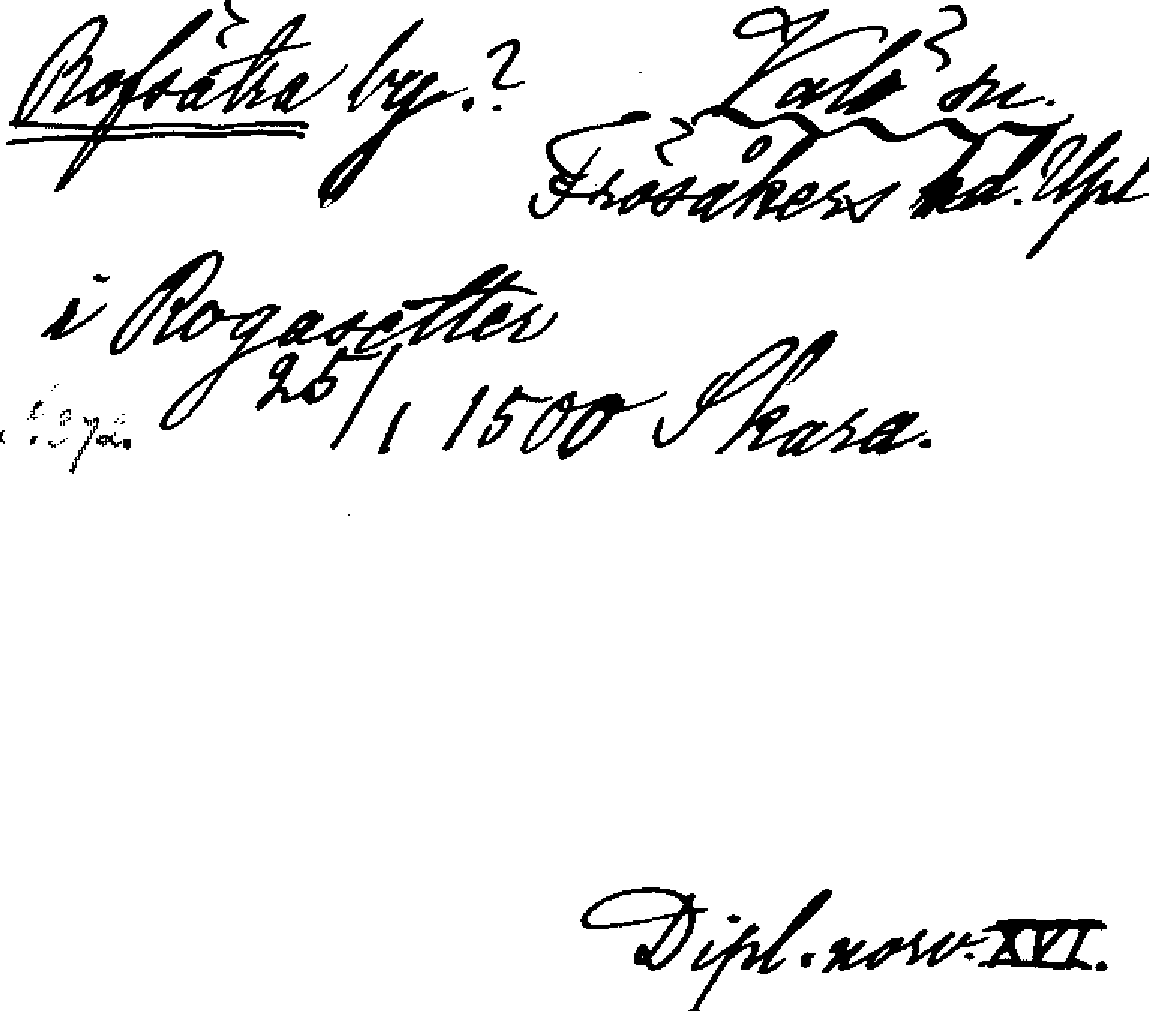 Rofsätra by.? Valö sn.
Frösåkers hd. Upl
i Rogasätter
25/1 1500 Skara.
Dipl. norv. XVI.